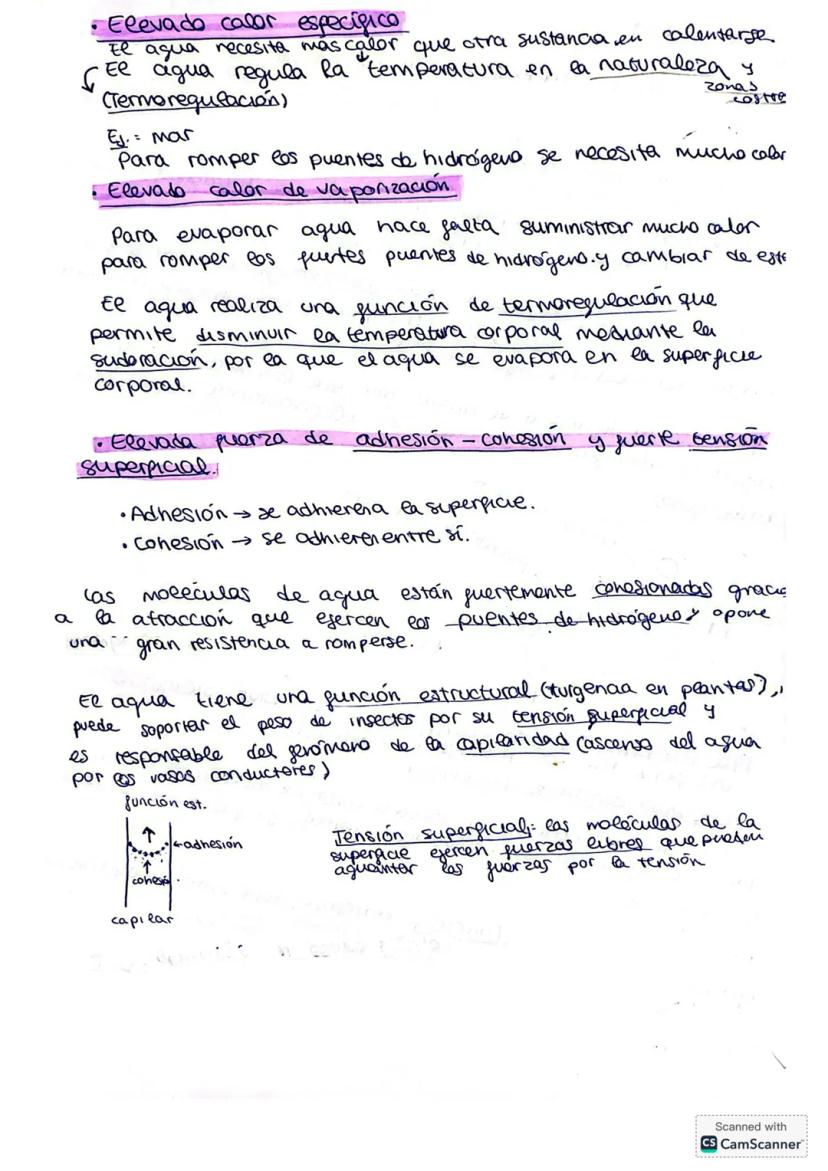 · Elevado calor específico
El agua necesita más calor que otra sustancia en calentarse
El agua regula la temperatura en la naturaleza y
zonas
costre
(Termoregulación)
Ej. = mar
Para romper los puentes de hidrógeno se necesita mucho calor
· Elevado calor de vaporización
Para evaporar agua hace falta suministrar mucho calor
para romper los fuertes puentes de hidrógeno y cambiar de esta
El agua realiza una función de termoregulación que
permite disminuir la temperatura corporal mediante la
sudoración, por la que el agua se evapora en la superficie
corporal.
· Elevada fuerza de adhesión - cohesión y fuerte tensión
superficial.
· Adhesión → se adhieren a la superficie.
· Cohesión → se adhieren entre sí.
Las moléculas de agua están fuertemente cohesionadas gracia
a la atracción que ejercen los puentes de hidrógeno y opone
una gran resistencia a romperse.
El agua tiene una función estructural (turgencia en plantas),
puede soportar el peso de insectos por su tensión superficial y
es responsable del fenómeno de la capilaridad (ascenso del agua
por los vasos conductores)
función est.
← adhesión
cohesió
capilar
Tensión superficial: las moléculas de la
superficie ejercen fuerzas libres que pueden
aguantar las fuerzas por la tensión
Scanned with
CS CamScanner